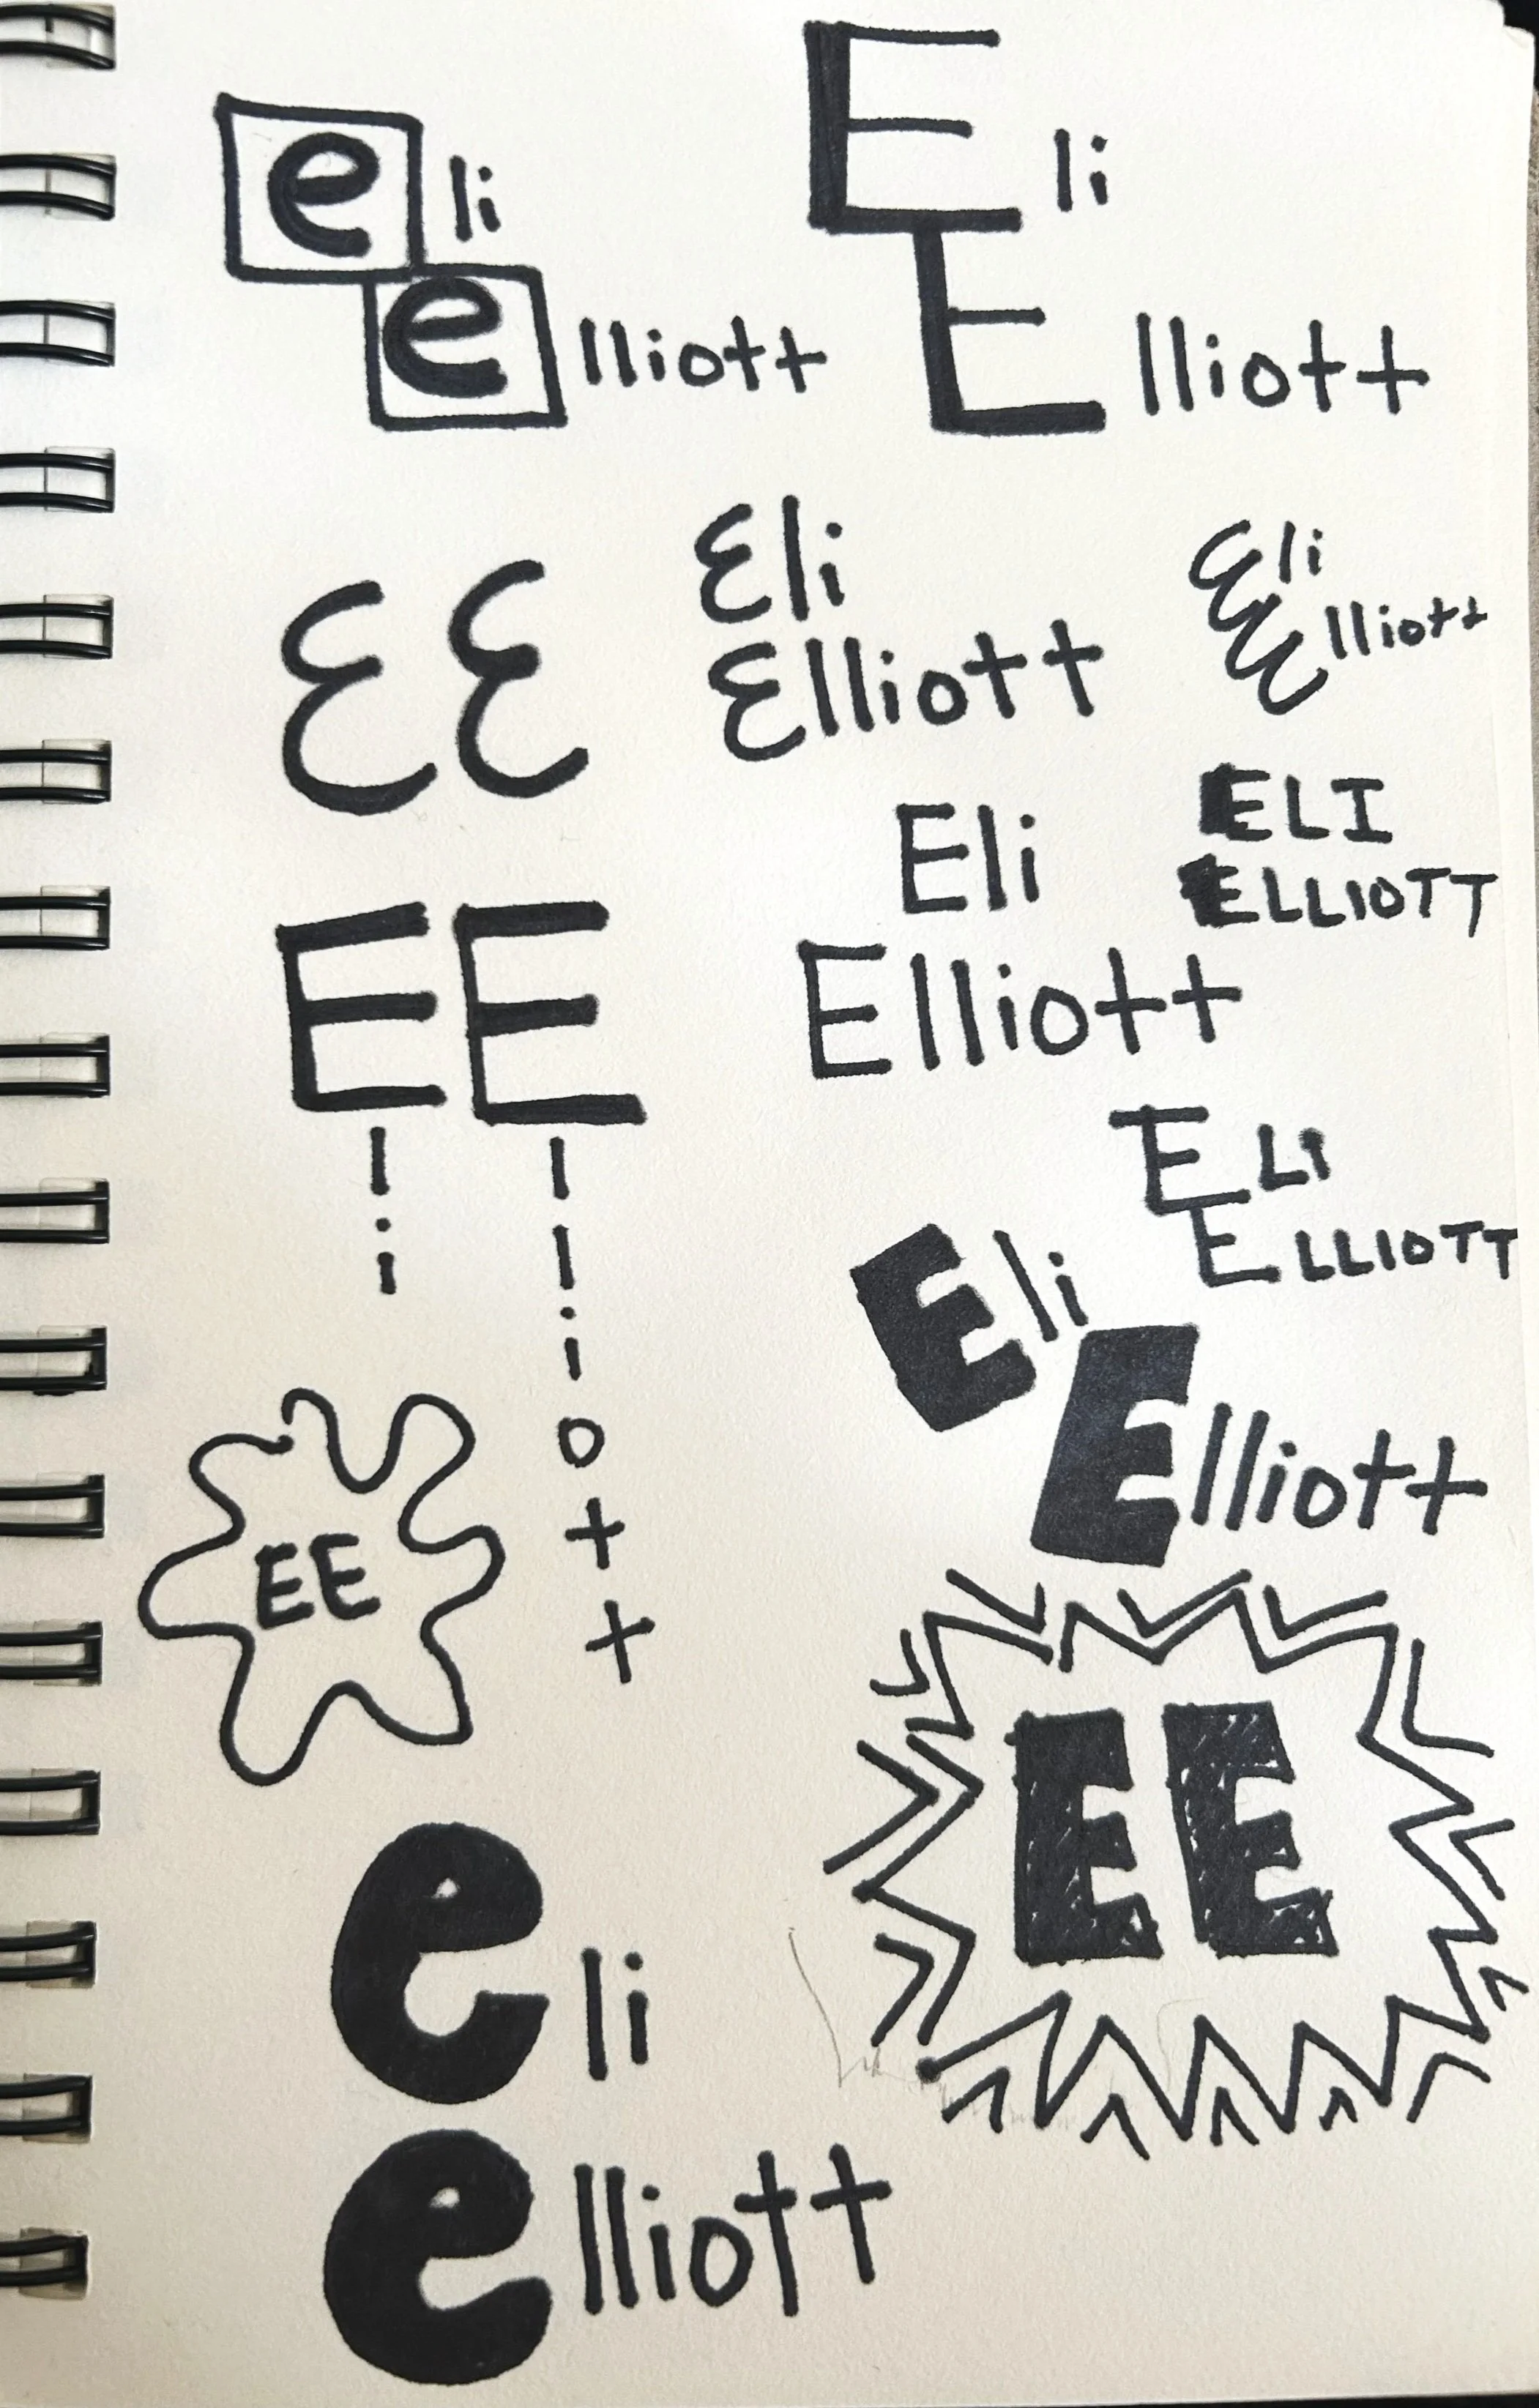 eli
elliott
Eli
Elliott
ƐƐ
Ɛli
Ɛlliott
Ɛli
Ɛlliott
Eli
Elliott
ELI
ELLIOTT
Eli
Elliott
ELi
ELLIOTT
Eli
Elliott
EE
EE
eli
elliott